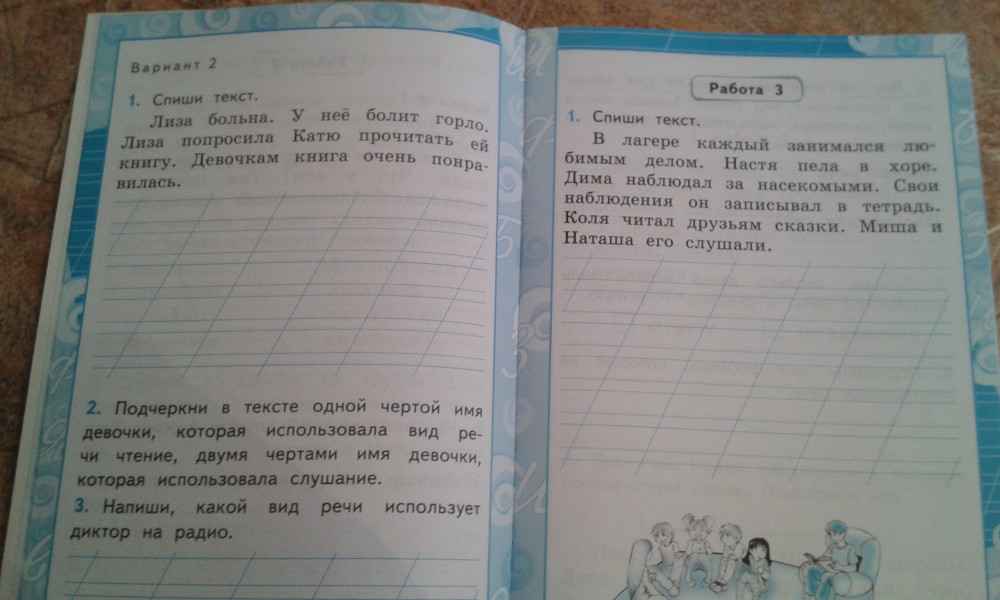 Вариант 2
1. Спиши текст.
Лиза больна. У неё болит горло.
Лиза попросила Катю прочитать ей
книгу. Девочкам книга очень понра-
вилась.
2. Подчеркни в тексте одной чертой имя
девочки, которая использовала вид ре-
чи чтение, двумя чертами имя девочки,
которая использовала слушание.
3. Напиши, какой вид речи использует
диктор на радио.
Работа 3
1. Спиши текст.
В лагере каждый занимался лю-
бимым делом. Настя пела в хоре.
Дима наблюдал за насекомыми. Свои
наблюдения он записывал в тетрадь.
Коля читал друзьям сказки. Миша и
Наташа его слушали.